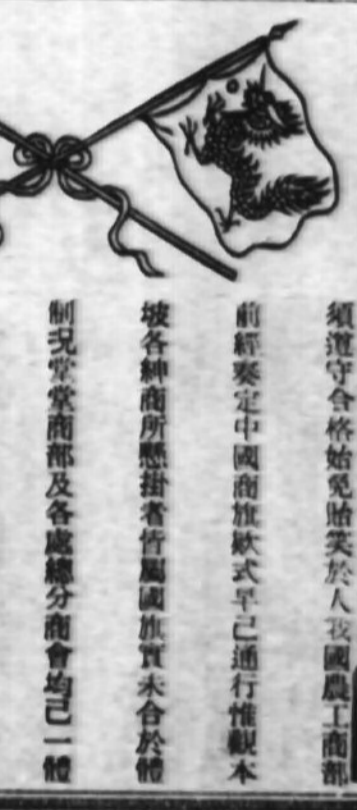 須遵守合格始免貽笑於人我國農工商部
前經奏定中國商旗欵式早已通行惟觀本
坡各紳商所懸掛者皆屬國旗實未合於體
制况堂堂商部及各處總分商會均已一體